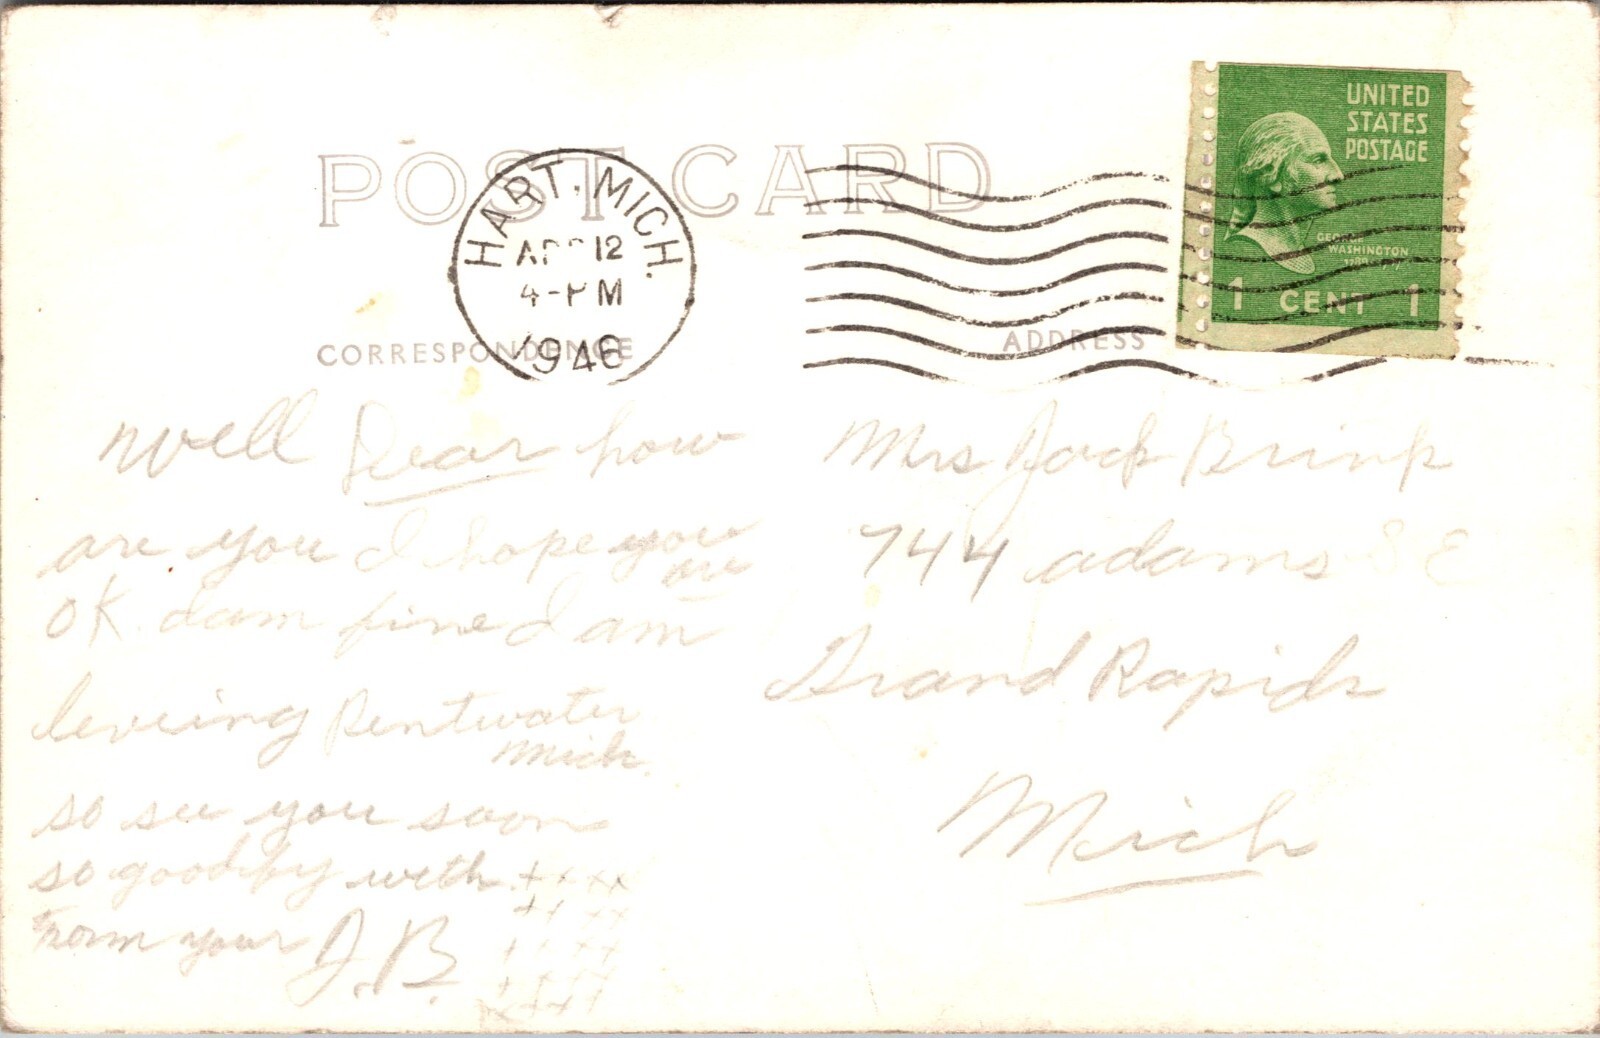 UNITED
STATES
POSTAGE
GEORGE
WASHINGTON
1 CENT 1
POST CARD
HART. MICH.
APR 12
4-PM
1946
CORRESPONDENCE
ADDRESS
well Dear how
are you I hope you
are
OK. dam fine I am
leveing Pentwater
Mich.
so see you soon
so goodby with ++xx
++xx
from your J.B.
++xx
++++
x+++
Mrs Jack Brink
744 adams S E
Grand Rapids
Mich